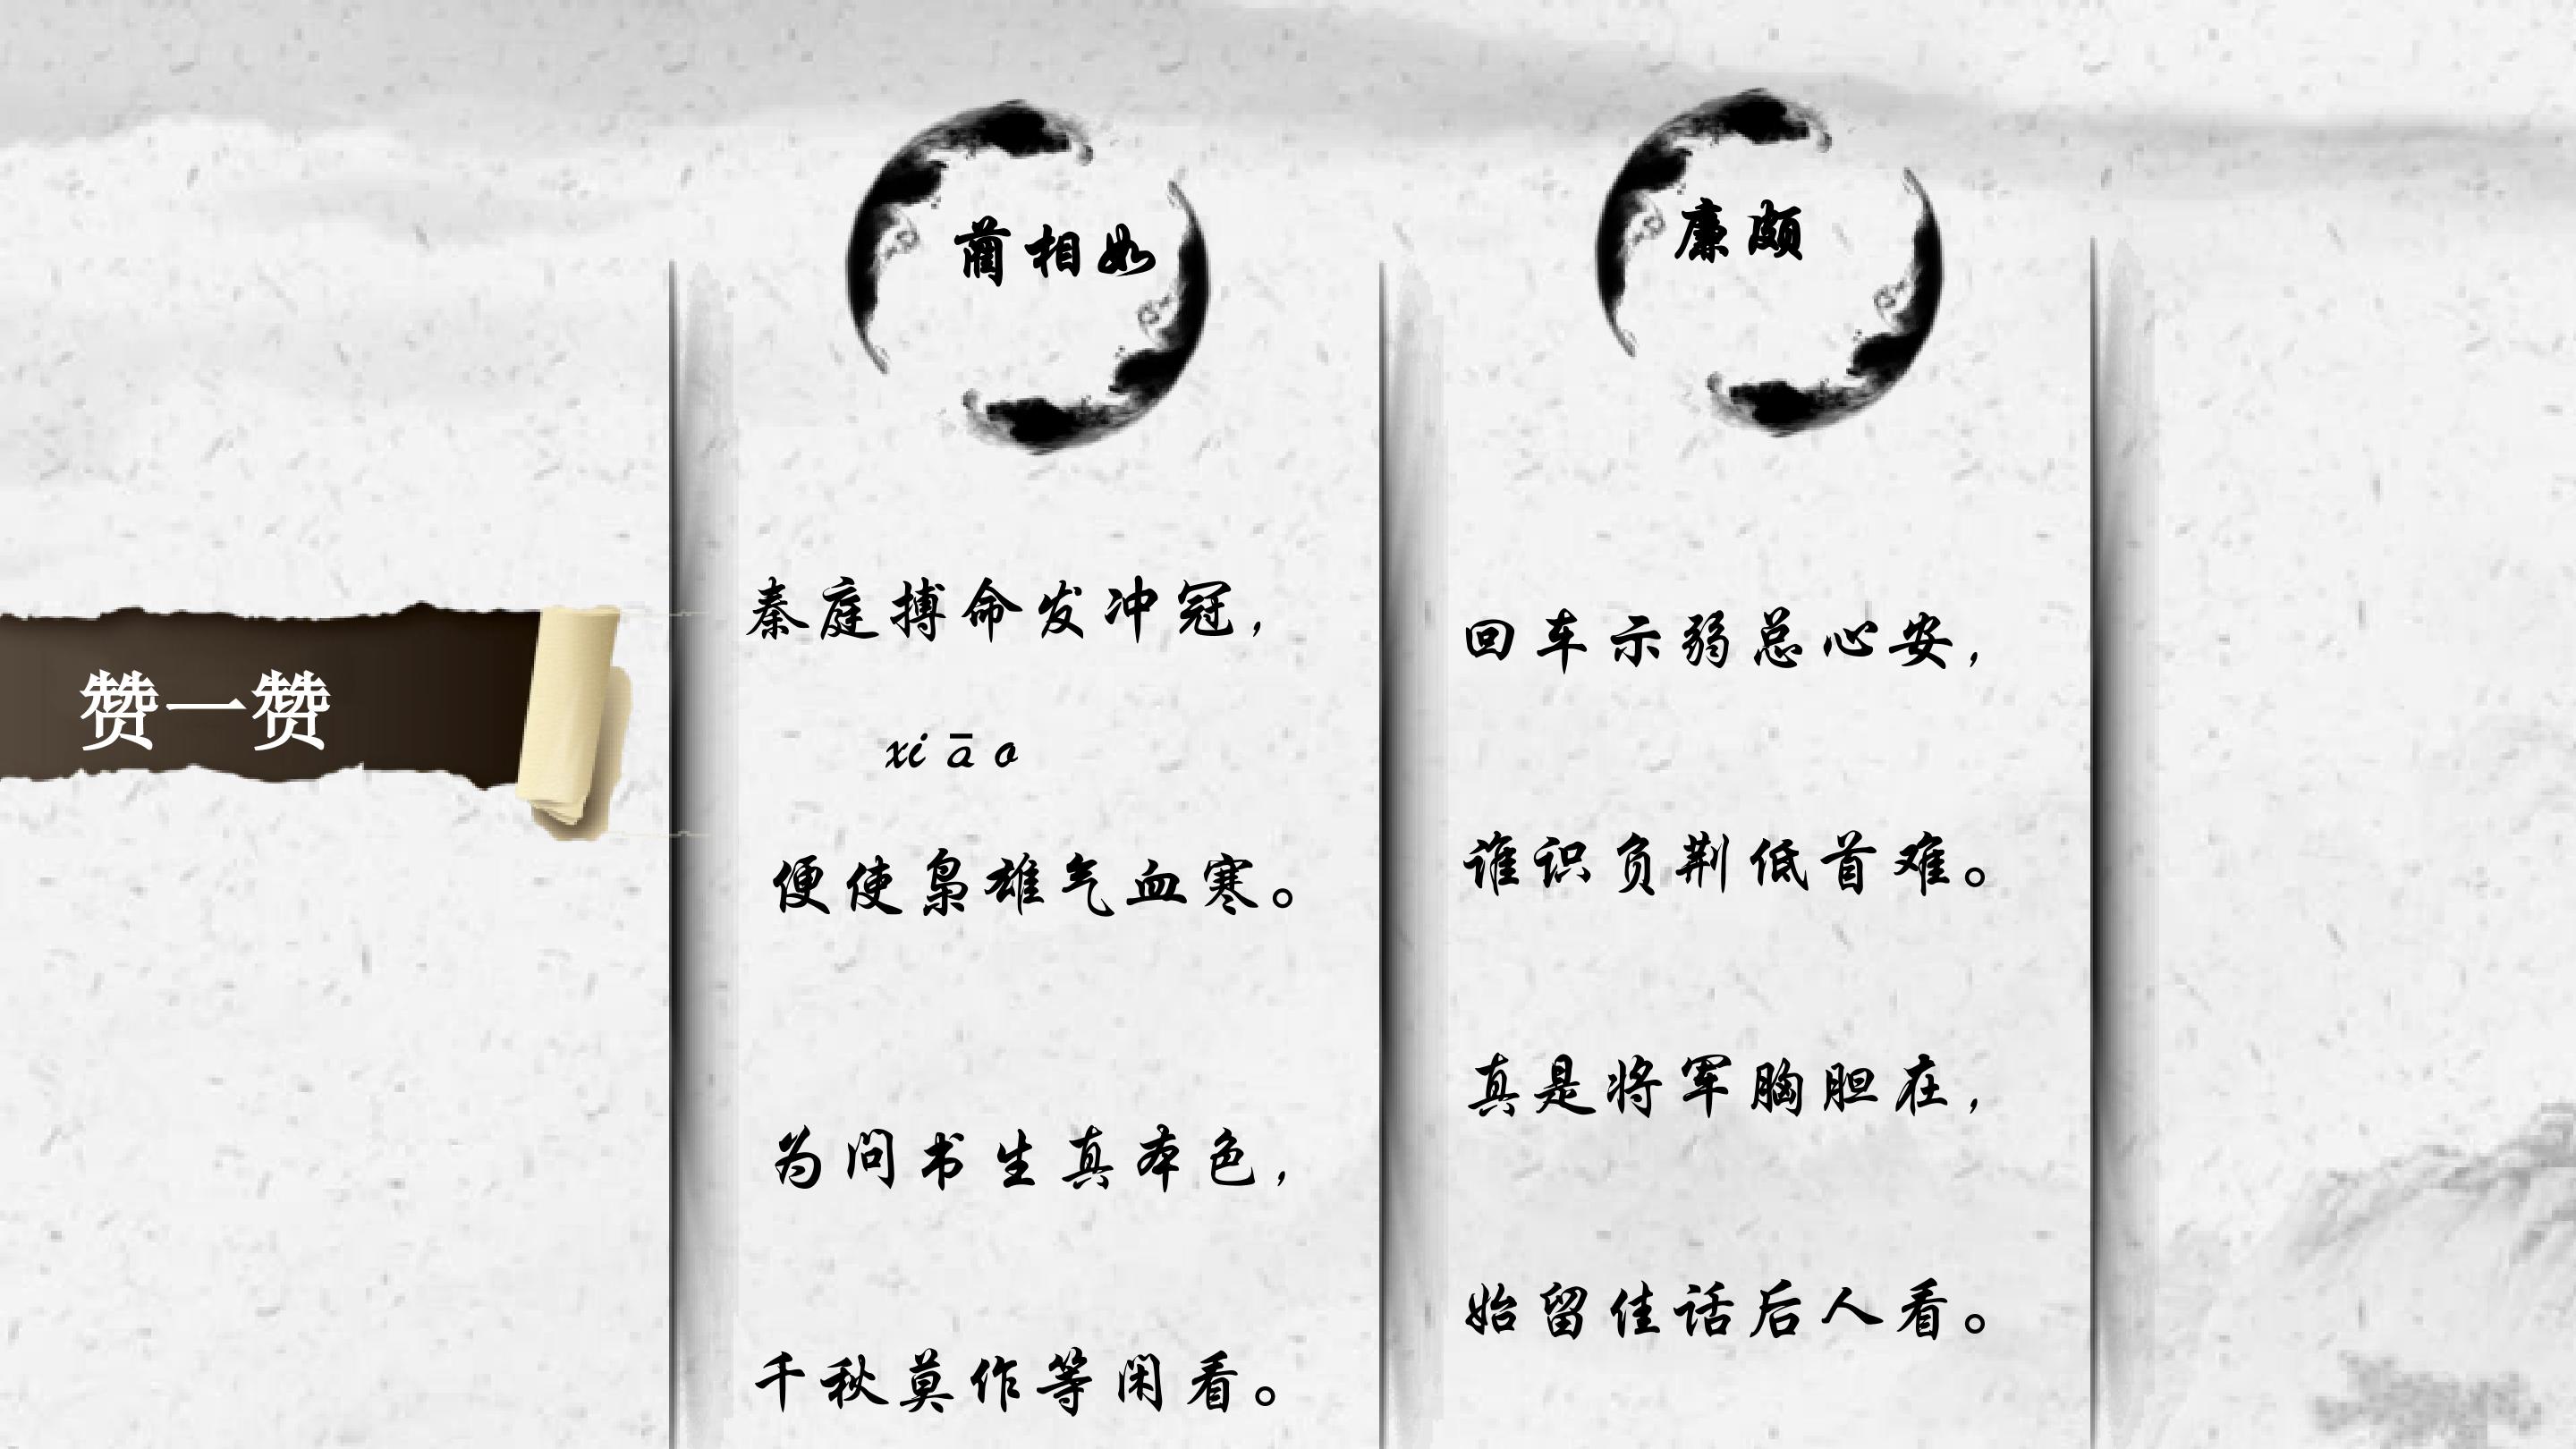 赞一赞
蔺相如
秦庭搏命发冲冠，
xiāo
便使枭雄气血寒。
为问书生真本色，
千秋莫作等闲看。
廉颇
回车示弱总心安，
谁识负荆低首难。
真是将军胸胆在，
始留佳话后人看。